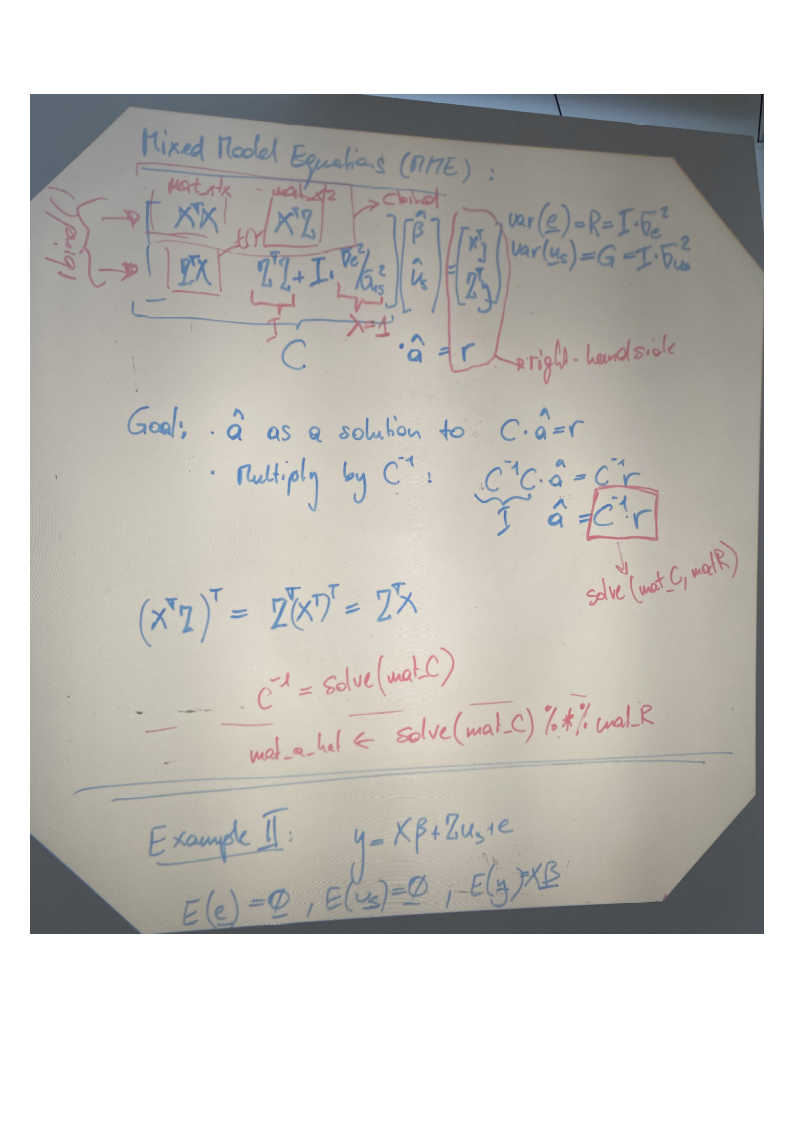 Mixed Model Equations (MME) :
mat_xtx mat_xtz cbind
[ XᵀX XᵀZ ] [ β̂ ] = [ Xᵀy ] var(e) = R = I·σe²
t()
[ ZᵀX ZᵀZ + I · σe²/σus² ] [ ûs ] [ Zᵀy ] var(us) = G = I·σus²
rbind()
I λ=1
C · â = r → right-hand side
Goal: · â as a solution to C · â = r
· Multiply by C⁻¹ : C⁻¹C · â = C⁻¹r
I â = C⁻¹·r
solve(mat_C, mat_R)
(XᵀZ)ᵀ = Zᵀ(Xᵀ)ᵀ = ZᵀX
C⁻¹ = solve(mat_C)
mat_a_hat ← solve(mat_C) %*% mat_R
Example II: y = Xβ + Zus + e
E(e) = 0 , E(us) = 0 , E(y) = Xβ